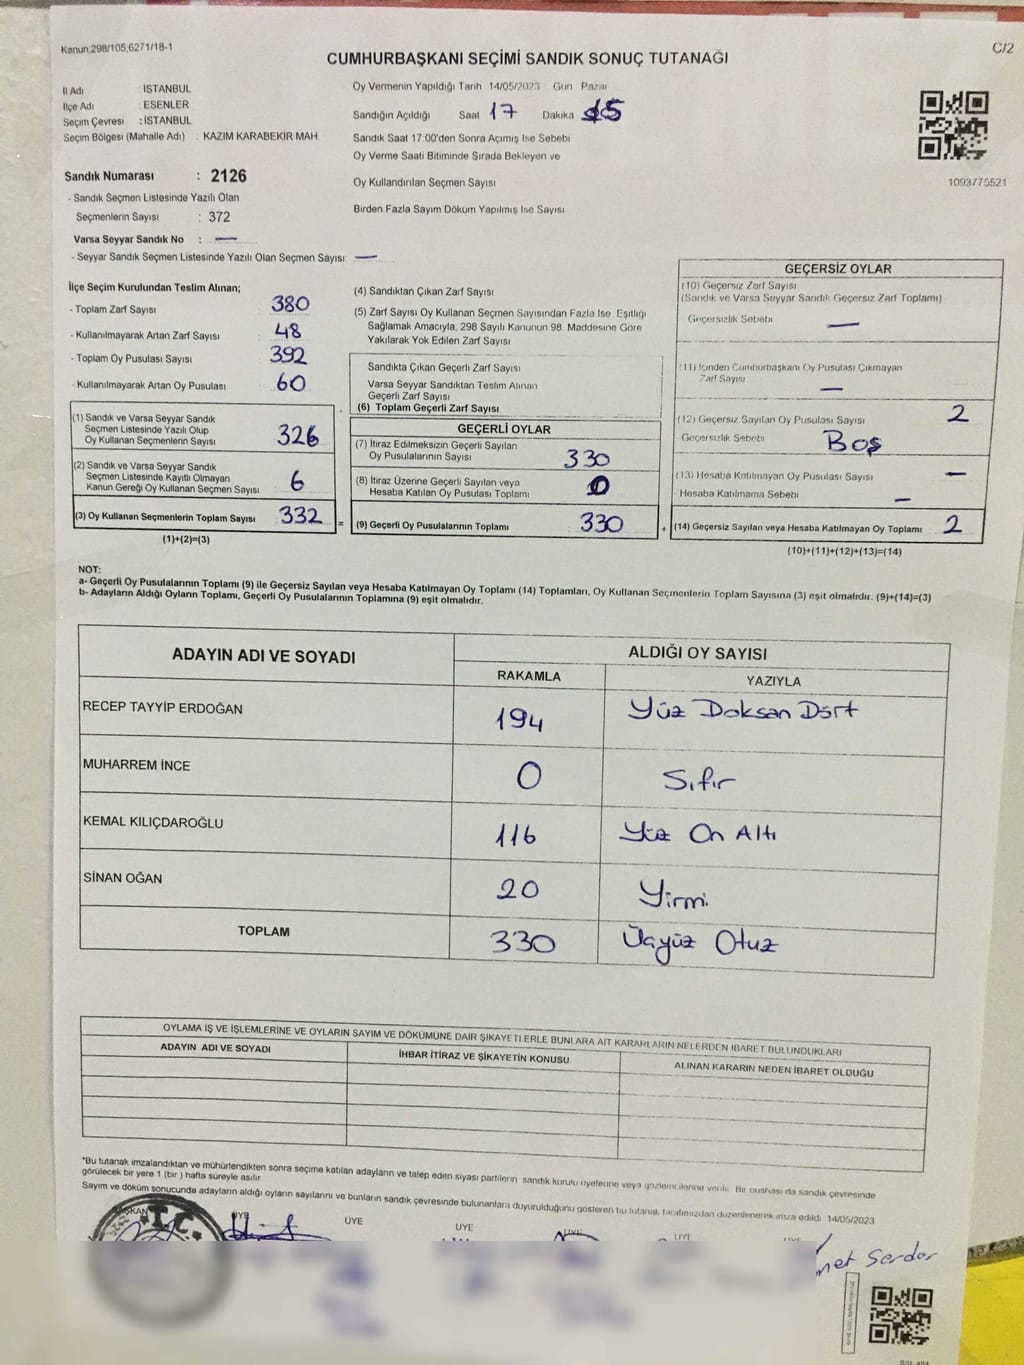 Kanun,298/105,6271/18-1
C/2
CUMHURBAŞKANI SEÇİMİ SANDIK SONUÇ TUTANAĞI
İl Adı : İSTANBUL
İlçe Adı : ESENLER
Seçim Çevresi : İSTANBUL
Seçim Bölgesi (Mahalle Adı) : KAZIM KARABEKİR MAH.
Sandık Numarası : 2126
- Sandık Seçmen Listesinde Yazılı Olan
Seçmenlerin Sayısı : 372
Varsa Seyyar Sandık No : —
- Seyyar Sandık Seçmen Listesinde Yazılı Olan Seçmen Sayısı: —
Oy Vermenin Yapıldığı Tarih 14/05/2023 Gün Pazar
Sandığın Açıldığı Saat 17 Dakika 15
Sandık Saat 17:00'den Sonra Açımış İse Sebebi
Oy Verme Saati Bitiminde Sırada Bekleyen ve
Oy Kullandırılan Seçmen Sayısı
Birden Fazla Sayım Döküm Yapılmış İse Sayısı
1093775521
İlçe Seçim Kurulundan Teslim Alınan;
- Toplam Zarf Sayısı : 380
- Kullanılmayarak Artan Zarf Sayısı : 48
- Toplam Oy Pusulası Sayısı : 392
- Kullanılmayarak Artan Oy Pusulası : 60
(1) Sandık ve Varsa Seyyar Sandık
Seçmen Listesinde Yazılı Olup
Oy Kullanan Seçmenlerin Sayısı 326
(2) Sandık ve Varsa Seyyar Sandık
Seçmen Listesinde Kayıtlı Olmayan
Kanun Gereği Oy Kullanan Seçmen Sayısı 6
(3) Oy Kullanan Seçmenlerin Toplam Sayısı 332
(1)+(2)=(3)
(4) Sandıktan Çıkan Zarf Sayısı
(5) Zarf Sayısı Oy Kullanan Seçmen Sayısından Fazla İse Eşitliği
Sağlamak Amacıyla; 298 Sayılı Kanunun 98. Maddesine Göre
Yakılarak Yok Edilen Zarf Sayısı
Sandıkta Çıkan Geçerli Zarf Sayısı
Varsa Seyyar Sandıktan Teslim Alınan
Geçerli Zarf Sayısı
(6) Toplam Geçerli Zarf Sayısı
GEÇERLİ OYLAR
(7) İtiraz Edilmeksizin Geçerli Sayılan
Oy Pusulalarının Sayısı 330
(8) İtiraz Üzerine Geçerli Sayılan veya
Hesaba Katılan Oy Pusulası Toplamı 0
= (9) Geçerli Oy Pusulalarının Toplamı 330
GEÇERSİZ OYLAR
(10) Geçersiz Zarf Sayısı
(Sandık ve Varsa Seyyar Sandık Geçersiz Zarf Toplamı)
Geçersizlik Sebebi —
(11) İçinden Cumhurbaşkanı Oy Pusulası Çıkmayan
Zarf Sayısı —
(12) Geçersiz Sayılan Oy Pusulası Sayısı 2
Geçersizlik Sebebi Boş
(13) Hesaba Katılmayan Oy Pusulası Sayısı —
Hesaba Katılmama Sebebi —
+ (14) Geçersiz Sayılan veya Hesaba Katılmayan Oy Toplamı 2
(10)+(11)+(12)+(13)=(14)
NOT:
a- Geçerli Oy Pusulalarının Toplamı (9) ile Geçersiz Sayılan veya Hesaba Katılmayan Oy Toplamı (14) Toplamları, Oy Kullanan Seçmenlerin Toplam Sayısına (3) eşit olmalıdır. (9)+(14)=(3)
b- Adayların Aldığı Oyların Toplamı, Geçerli Oy Pusulalarının Toplamına (9) eşit olmalıdır.
ADAYIN ADI VE SOYADI ALDIĞI OY SAYISI
RAKAMLA YAZIYLA
RECEP TAYYİP ERDOĞAN 194 Yüz Doksan Dört
MUHARREM İNCE 0 Sıfır
KEMAL KILIÇDAROĞLU 116 Yüz On Altı
SİNAN OĞAN 20 Yirmi
TOPLAM 330 Üçyüz Otuz
OYLAMA İŞ VE İŞLEMLERİNE VE OYLARIN SAYIM VE DÖKÜMÜNE DAİR ŞİKAYETLERLE BUNLARA AİT KARARLARIN NELERDEN İBARET BULUNDUKLARI
ADAYIN ADI VE SOYADI İHBAR İTİRAZ VE ŞİKAYETİN KONUSU ALINAN KARARIN NEDEN İBARET OLDUĞU
*Bu tutanak imzalandıktan ve mühürlendikten sonra seçime katılan adayların ve talep eden siyasi partilerin sandık kurulu üyelerine veya gözlemcilerine verilir. Bir nüshası da sandık çevresinde
görülecek bir yere 1 (bir) hafta süreyle asılır.
Sayım ve döküm sonucunda adayların aldığı oyların sayılarını ve bunların sandık çevresinde bulunanlara duyurulduğunu gösteren bu tutanak tarafımızdan düzenlenerek imza edildi. 14/05/2023
ÜYE ÜYE ÜYE ÜYE
T.C
Serdar